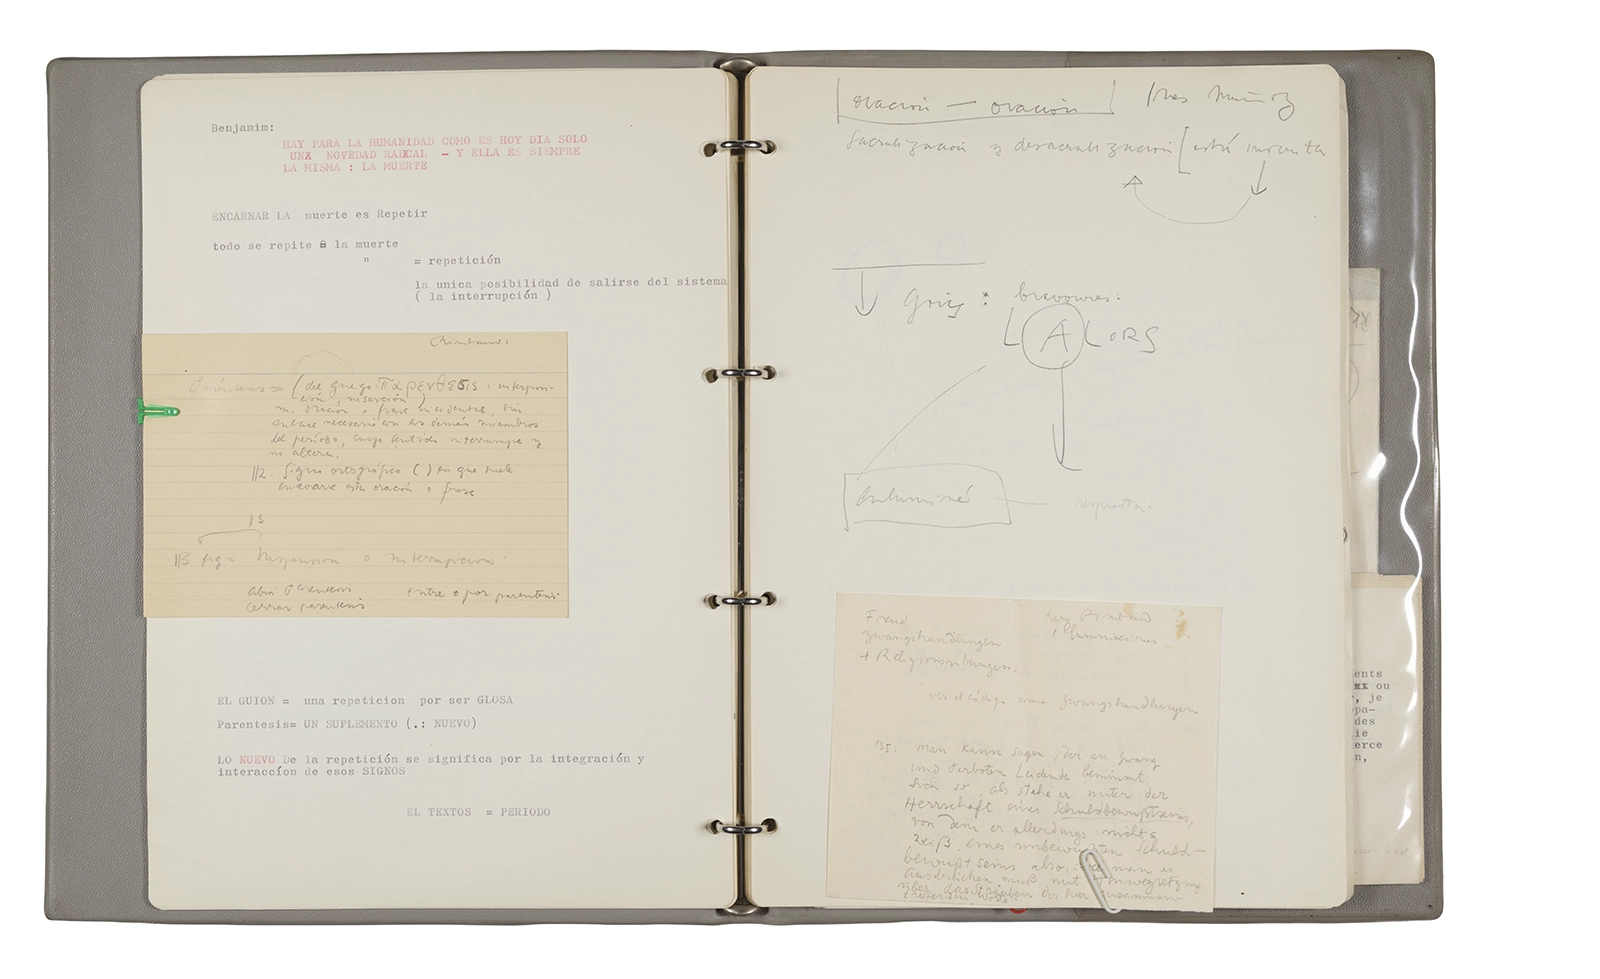 Benjamim:
HAY PARA LA HUMANIDAD COMO ES HOY DIA SOLO
UNA NOVEDAD RADICAL - Y ELLA ES SIEMPRE
LA MISMA : LA MUERTE
ENCARNAR LA muerte es Repetir
todo se repite la muerte
" = repetición
la unica posibilidad de salirse del sistema
( la interrupción )
Rimbaud:
(del griego: παρενθεσις: interposi-
ción, inserción)
m. oración o frase incidental, sin
enlace necesario con los demás miembros
del período, cuyo sentido interrumpe y
no altera.
||2. Signo ortográfico ( ) en que suele
encerrarse esta oración o frase
13
||3 fig = Suspensión o interrupción.
abrir parentesis entre o por parentesis
cerrar parentesis
EL GUION = una repeticion por ser GLOSA
Parentesis= UN SUPLEMENTO (.: NUEVO)
LO NUEVO De la repetición se significa por la integración y
interaccíon de esos SIGNOS
EL TEXTOS = PERIODO
oración — oración
Sacralización y desacralización [está
:
LALORS
respuesta:
Freud:
Zwangshandlungen
+ Religionsübungen.
para Rimbaud
Iluminaciones
ver el código como Zwangshandlungen
man kann sagen, der an Zwang
und Verboten Leidende benimmt
sich so, als stehe er unter der
Herrschaft eines Schuldbewußtseins,
von dem er allerdings nichts
weiß, eines unbewußten Schuld-
bewußtseins also, man es
ausdrücken muß mit Hinwegsetzung
über das Sträuben der hier zusammen-
treffenden Worte
ents
ou
, je
pa-
des
ie
erce
n,